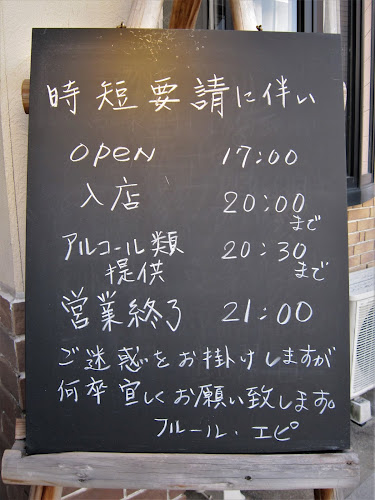 時短要請に伴い
OPEN 17:00
入店 20:00
まで
アルコール類 20:30
提供 まで
営業終了 21:00
ご迷惑をお掛けしますが
何卒宜しくお願い致します。
フルール・エピ